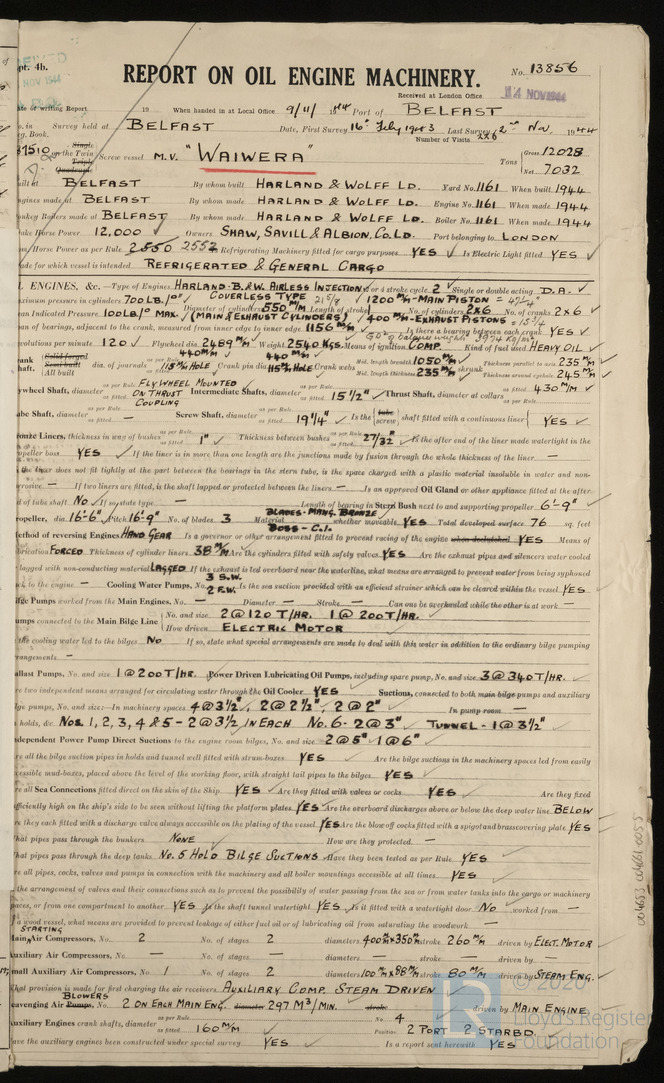 pt. 4b.
NOV 1944
REPORT ON OIL ENGINE MACHINERY.
No. 13856
Received at London Office
14 NOV 1944
Date of writing Report 19 When handed in at Local Office 9/11/1944 Port of BELFAST
No. in Survey held at BELFAST Date, First Survey 16th July 1943 Last Survey 2nd Nov. 1944
Reg. Book. Number of Visits 226
37510 on the Single Twin Triple Quadruple Screw vessel M.V. "WAIWERA" Tons Gross 12028 Net 7032
Built at BELFAST By whom built HARLAND & WOLFF LD. Yard No. 1161 When built 1944
Engines made at BELFAST By whom made HARLAND & WOLFF LD. Engine No. 1161 When made 1944
Donkey Boilers made at BELFAST By whom made HARLAND & WOLFF LD. Boiler No. 1161 When made 1944
Brake Horse Power 12,000 Owners SHAW, SAVILL & ALBION, CO. LD. Port belonging to LONDON
Nom. Horse Power as per Rule 2550 2552 Refrigerating Machinery fitted for cargo purposes YES Is Electric Light fitted YES
Trade for which vessel is intended REFRIGERATED & GENERAL CARGO
OIL ENGINES, &c.—Type of Engines HARLAND-B.&W. AIRLESS INJECTION 2 or 4 stroke cycle 2 Single or double acting D.A.
COVERLESS TYPE 21 5/8 1200 M/M - MAIN PISTON = 47 1/4"
Maximum pressure in cylinders 700 LB./□" Diameter of cylinders 550 M/M Length of stroke No. of cylinders 2x6 No. of cranks 2x6
Mean Indicated Pressure 100 LB/□" MAX. (MAIN & EXHAUST CYLINDERS) 400 M/M - EXHAUST PISTONS = 15 3/4
Span of bearings, adjacent to the crank, measured from inner edge to inner edge 1156 M/M Is there a bearing between each crank YES
Revolutions per minute 120 Flywheel dia. 2489 M/M Weight 2540 KGS. Means of ignition COMP. Kind of fuel used HEAVY OIL
Crank Shaft, Solid forged Semi built All built dia. of journals as per Rule 440 M/M as fitted 115 M/M HOLE Crank pin dia. 440 M/M 115 M/M HOLE Crank webs Mid. length breadth 1050 M/M Mid. length thickness 235 M/M shrunk Thickness parallel to axis 235 M/M Thickness around eyehole 245 M/M
Flywheel Shaft, diameter as per Rule FLYWHEEL MOUNTED as fitted ON THRUST COUPLING Intermediate Shafts, diameter as per Rule as fitted 15 1/2" Thrust Shaft, diameter at collars as per Rule as fitted 430 M/M
Tube Shaft, diameter as per Rule as fitted — Screw Shaft, diameter as per Rule as fitted 19 1/4" Is the tube screw shaft fitted with a continuous liner YES
Bronze Liners, thickness in way of bushes as per Rule as fitted 1" Thickness between bushes as per Rule as fitted 27/32" Is the after end of the liner made watertight in the
propeller boss YES If the liner is in more than one length are the junctions made by fusion through the whole thickness of the liner —
If the liner does not fit tightly at the part between the bearings in the stern tube, is the space charged with a plastic material insoluble in water and non-
corrosive — If two liners are fitted, is the shaft lapped or protected between the liners — Is an approved Oil Gland or other appliance fitted at the after
end of tube shaft NO If so, state type — Length of bearing in Stern Bush next to and supporting propeller 6'-9"
Propeller, dia. 16'-6" Pitch 16'-9" No. of blades 3 Material BLADES-MANG. BRONZE BOSS - C.I. whether moveable YES Total developed surface 76 sq. feet
Method of reversing Engines HAND GEAR Is a governor or other arrangement fitted to prevent racing of the engine when declutched YES Means of
lubrication FORCED Thickness of cylinder liners 38 M/M Are the cylinders fitted with safety valves YES Are the exhaust pipes and silencers water cooled
or lagged with non-conducting material LAGGED If the exhaust is led overboard near the waterline, what means are arranged to prevent water from being syphoned
back to the engine — Cooling Water Pumps, No. 3 S.W. 2 F.W. Is the sea suction provided with an efficient strainer which can be cleared within the vessel YES
Bilge Pumps worked from the Main Engines, No. — Diameter — Stroke — Can one be overhauled while the other is at work —
Pumps connected to the Main Bilge Line No. and size 2 @ 120 T/HR. 1 @ 200 T/HR.
How driven ELECTRIC MOTOR
Is the cooling water led to the bilges NO If so, state what special arrangements are made to deal with this water in addition to the ordinary bilge pumping
arrangements —
Ballast Pumps, No. and size 1 @ 200 T/HR. Power Driven Lubricating Oil Pumps, including spare pump, No. and size 3 @ 340 T/HR.
Are two independent means arranged for circulating water through the Oil Cooler YES Suctions, connected to both main bilge pumps and auxiliary
bilge pumps, No. and size:—In machinery spaces 4 @ 3 1/2", 2 @ 2 1/2", 2 @ 2" In pump room —
In holds, &c. NOS. 1, 2, 3, 4 & 5 - 2 @ 3 1/2 IN EACH NO. 6 - 2 @ 3" TUNNEL - 1 @ 3 1/2"
Independent Power Pump Direct Suctions to the engine room bilges, No. and size 2 @ 5" 1 @ 6"
Are all the bilge suction pipes in holds and tunnel well fitted with strum-boxes YES Are the bilge suctions in the machinery spaces led from easily
accessible mud-boxes, placed above the level of the working floor, with straight tail pipes to the bilges YES
Are all Sea Connections fitted direct on the skin of the Ship YES Are they fitted with valves or cocks YES Are they fixed
sufficiently high on the ship's side to be seen without lifting the platform plates YES Are the overboard discharges above or below the deep water line BELOW
Are they each fitted with a discharge valve always accessible on the plating of the vessel YES Are the blow off cocks fitted with a spigot and brass covering plate YES
What pipes pass through the bunkers NONE How are they protected —
What pipes pass through the deep tanks NO. 5 HOLD BILGE SUCTIONS Have they been tested as per Rule YES
Are all pipes, cocks, valves and pumps in connection with the machinery and all boiler mountings accessible at all times YES
Is the arrangement of valves and their connections such as to prevent the possibility of water passing from the sea or from water tanks into the cargo or machinery
spaces, or from one compartment to another YES Is the shaft tunnel watertight YES Is it fitted with a watertight door NO worked from —
If a wood vessel, what means are provided to prevent leakage of either fuel oil or of lubricating oil from saturating the woodwork —
STARTING
Main Air Compressors, No. 2 No. of stages 2 diameters 400 M/M x 350 M/M stroke 260 M/M driven by ELECT. MOTOR
Auxiliary Air Compressors, No. — No. of stages — diameters — stroke — driven by —
Small Auxiliary Air Compressors, No. 1 No. of stages 2 diameters 100 M/M x 88 M/M stroke 80 M/M driven by STEAM ENG.
What provision is made for first charging the air receivers AUXILIARY COMP. STEAM DRIVEN
BLOWERS
Scavenging Air Pumps, No. 2 ON EACH MAIN ENG. diameter 297 M³/MIN. stroke driven by MAIN ENGINE
Auxiliary Engines crank shafts, diameter as per Rule as fitted 160 M/M No. 4 Position 2 PORT 2 STARBD.
Have the auxiliary engines been constructed under special survey YES Is a report sent herewith YES
004653-004661-0055
© 2020
Lloyd's Register
Foundation